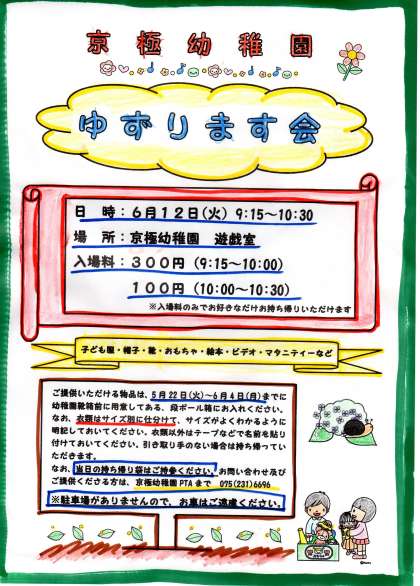 京極幼稚園
ゆずります会
日　時：６月１２日(火) 9:15～10:30
場　所：京極幼稚園　遊戯室
入場料：３００円 (9:15～10:00)
１００円 (10:00～10:30)
※入場料のみでお好きなだけお持ち帰りいただけます
子ども服・帽子・靴・おもちゃ・絵本・ビデオ・マタニティーなど
ご提供いただける物品は、5月22日(火)～6月4日(月)までに
幼稚園靴箱前に用意してある、段ボール箱にお入れください。
なお、衣類はサイズ別に仕分けて、サイズがよくわかるように
明記しておいてください。衣類以外はテープなどで名前を貼り
付けておいてください。引き取り手のない場合は持ち帰ってい
ただきます。
なお、当日の持ち帰り袋はご持参ください。お問い合わせ及び
ご提供くださる方は、京極幼稚園PTAまで　075(231)6696
※駐車場がありませんので、お車はご遠慮ください。